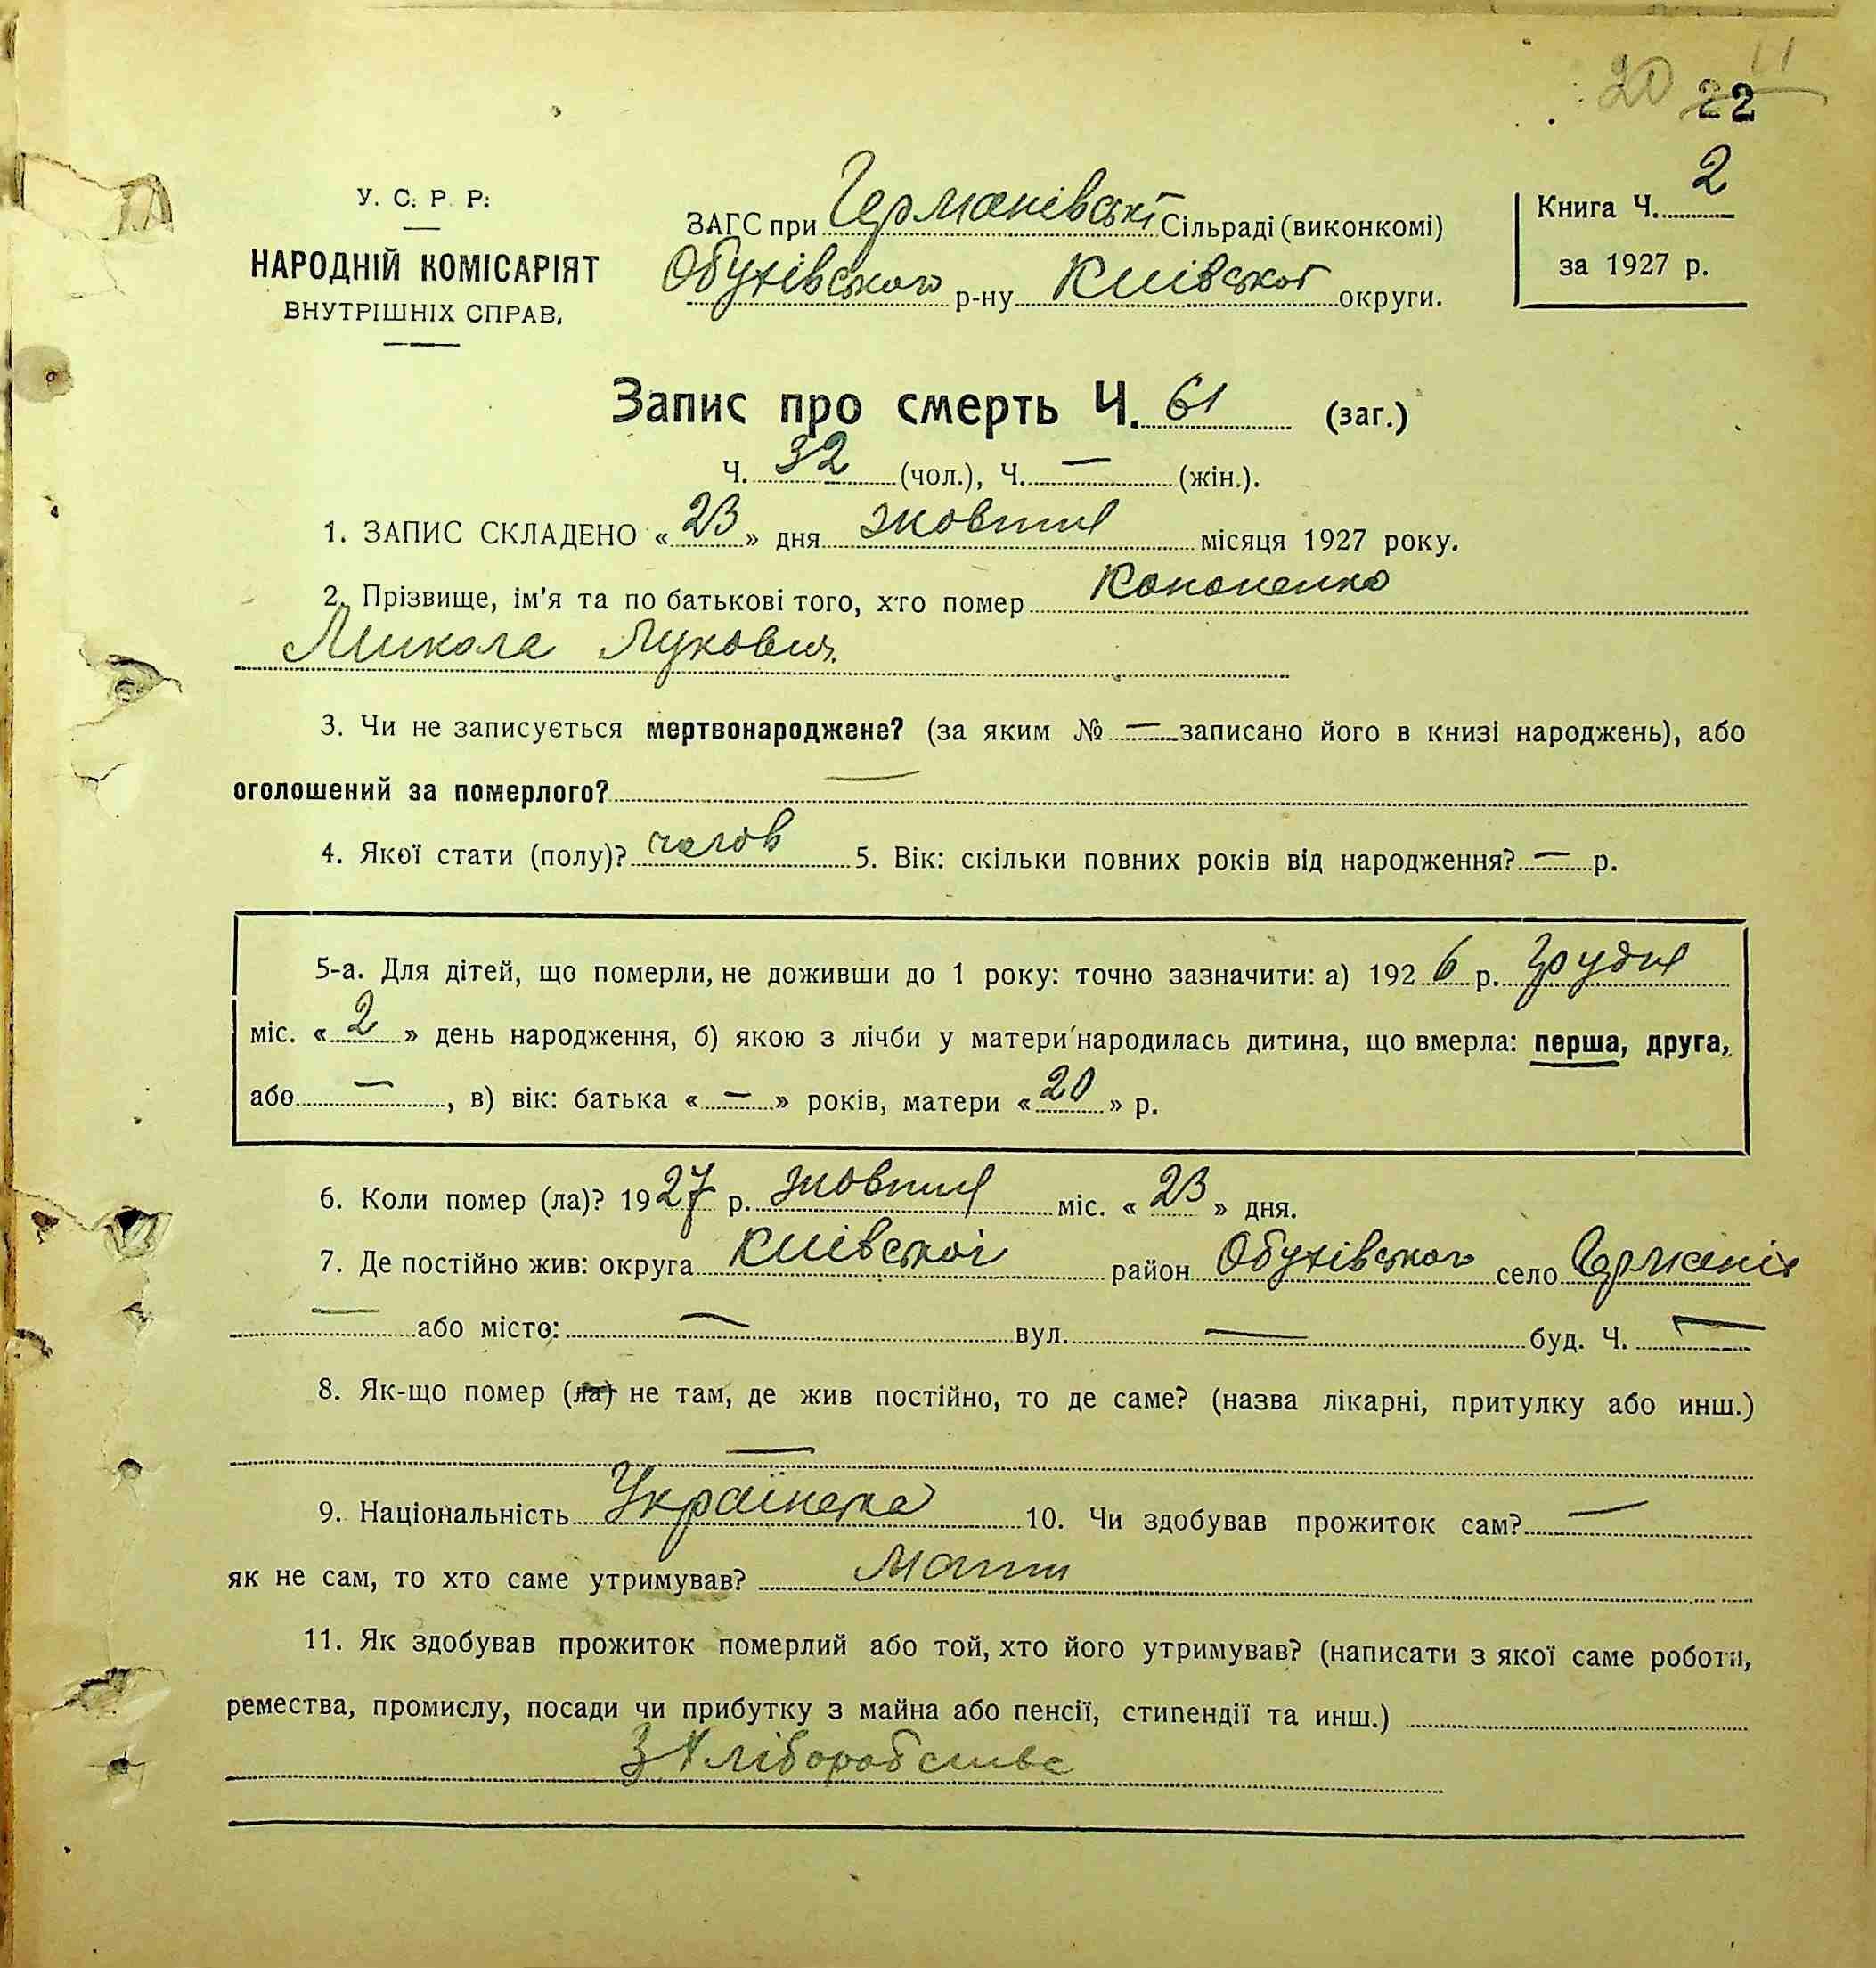 20 11
22
У. С. Р. Р.
НАРОДНІЙ КОМІСАРІЯТ
ВНУТРІШНІХ СПРАВ.
ЗАГС при Германівські Сільраді (виконкомі)
Обухівського р-ну Київської округи.
Книга Ч. 2
за 1927 р.
Запис про смерть Ч. 61 (заг.)
Ч. 32 (чол.), Ч. — (жін.).
1. ЗАПИС СКЛАДЕНО «23» дня жовтня місяця 1927 року.
2. Прізвище, ім'я та по батькові того, хто помер Кононенко
Микола Лукович
3. Чи не записується мертвонароджене? (за яким № — записано його в книзі народжень), або
оголошений за померлого? —
4. Якої стати (полу)? чолов 5. Вік: скільки повних років від народження? — р.
5-а. Для дітей, що померли, не доживши до 1 року: точно зазначити: а) 1926 р. Грудня
міс. «2» день народження, б) якою з лічби у матери народилась дитина, що вмерла: перша, друга,
або —, в) вік: батька «—» років, матери «20» р.
6. Коли помер (ла)? 1927 р. жовтня міс. «23» дня.
7. Де постійно жив: округа Київської район Обухівського село Германів
— або місто: — вул. — буд. Ч. —
8. Як-що помер (ла) не там, де жив постійно, то де саме? (назва лікарні, притулку або инш.)
—
9. Національність Українська 10. Чи здобував прожиток сам? —
як не сам, то хто саме утримував? Мати
11. Як здобував прожиток померлий або той, хто його утримував? (написати з якої саме роботи,
ремества, промислу, посади чи прибутку з майна або пенсії, стипендії та инш.)
З Хліборобства